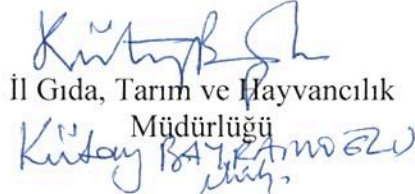 İl Gıda, Tarım ve Hayvancılık
Müdürlüğü
Kütay BAYRAMOĞLU
Müh.